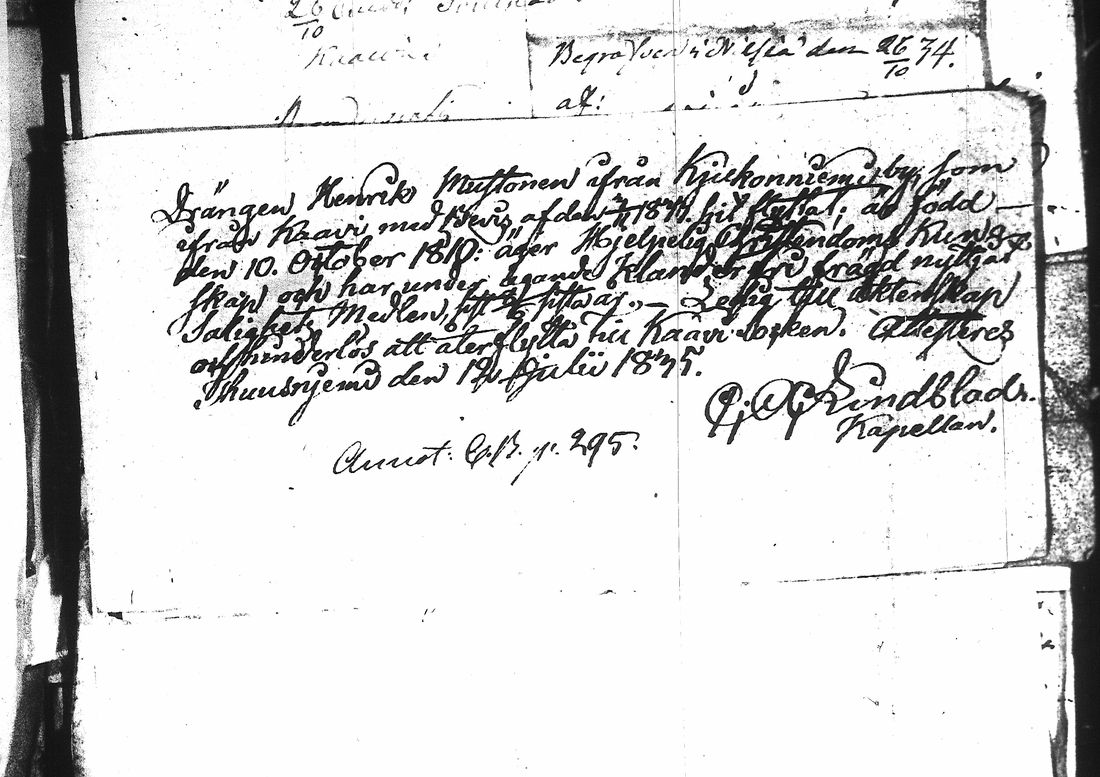 26/10
Begrafven i Nilsiä den 26/10 34.
af:
Drängen Henrik Mustonen ifrån Kjukonniemi by, som
ifrån Kaavi med Bevis af den 1834 hit flyttat; är född
den 10. October 1810: äger Hjelpelig Christendoms Kunsz
skap och har under egande Klanderfri frägd nyttjat
Salighets Medlen, sist sista år, — Ledig till äktenskap
och hinderlös att återflytta till Kaavi Socken. Attesteres
Muurujemi den 12 Julii 1835.
Lindblad.
Kapellan.
Annot. C.B. p. 295.